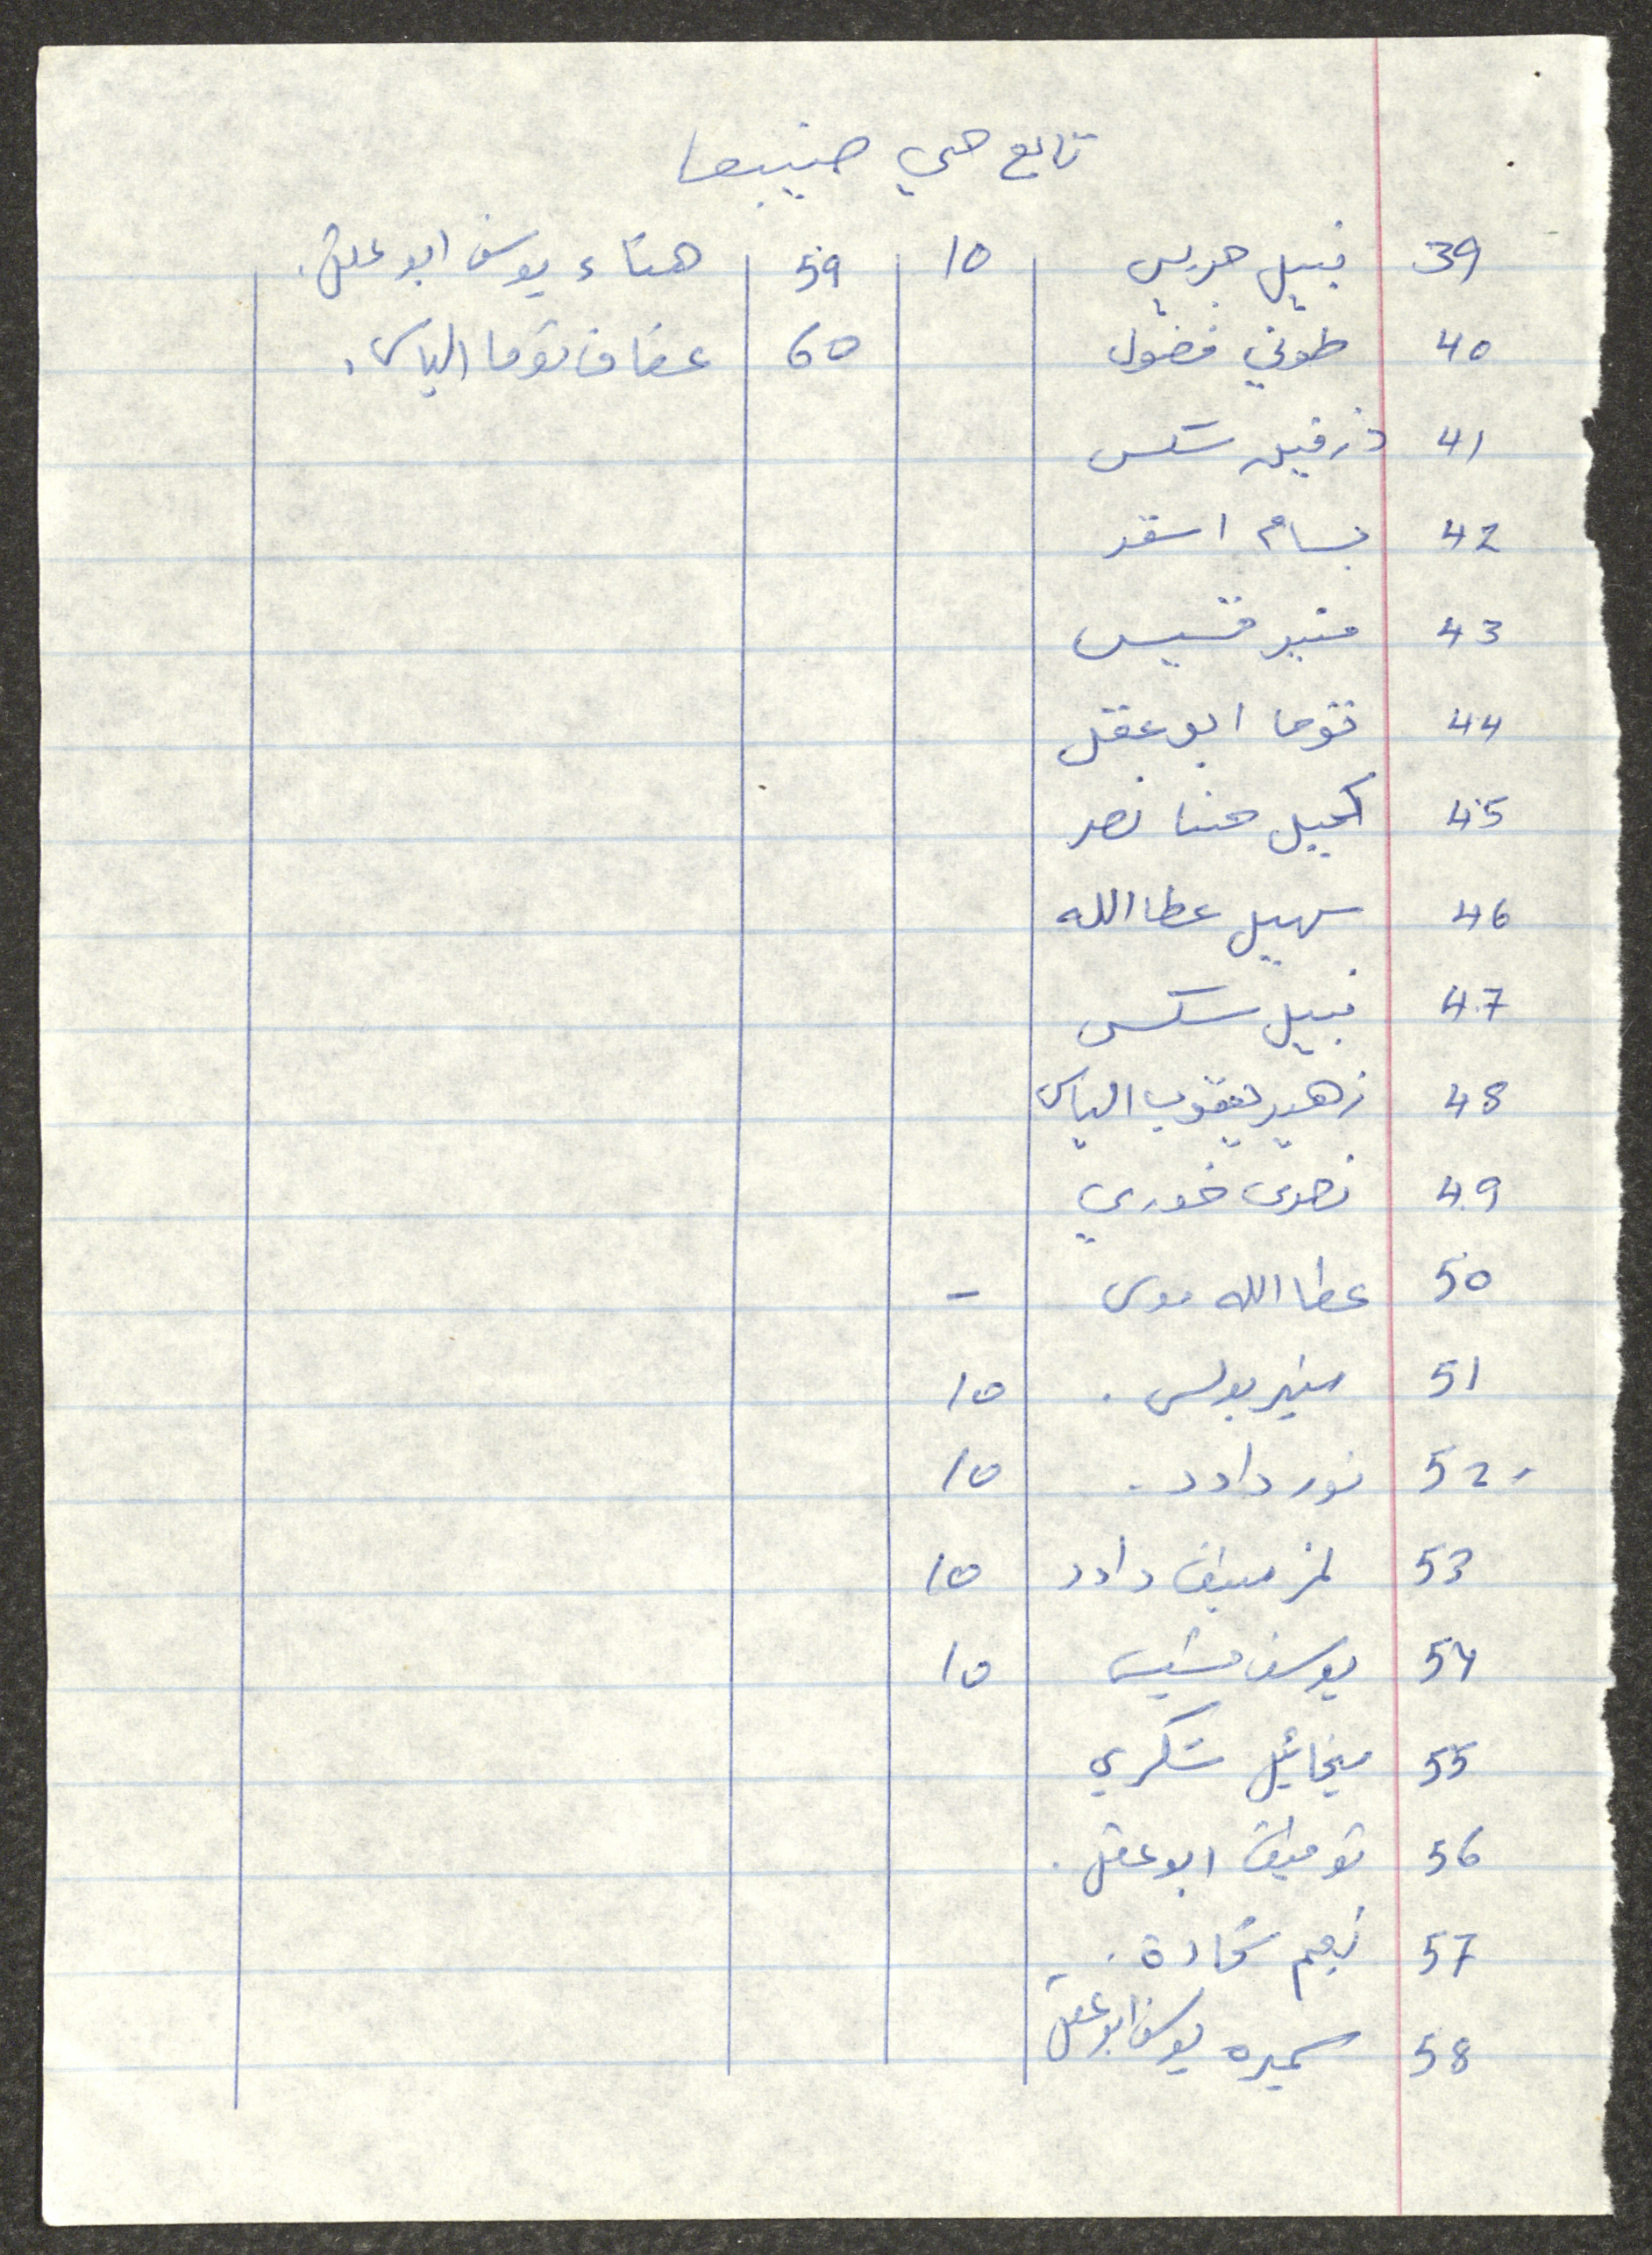 تابع حي
39 نبيل جريس 10
40 طوني فضول
41 شكس
42 بسام اسقر
43 منير قسيس
44 توما ابو عقل
45 كميل حنا نصر
46 سهيل عطاالله
47 نبيل شكس
48 زهير يعقوب الياس
49 نصري خوري
50 عطاالله موسى -
51 منير بولس . 10
52 نور داود . 10
53 داود 10
54 يوسف 10
55 ميخائيل شكري
56 توفيق ابو عقل .
57 نجم شحادة .
58 سميره يوسف ابو عقل
59 هناء يوسف ابو عقل .
60 عفاف توما الياس .